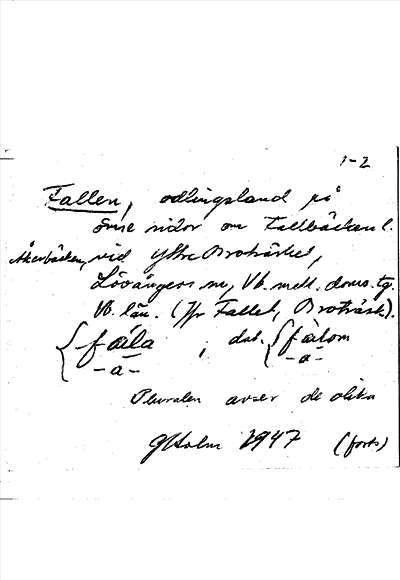 1-2
Fallen, odlingsland på
ömse sidor om Fallbäcken l.
Åkerbäcken, vid Yttre Broträsket,
Lövångers sn, Vb. mell. doms. tg.
Vb. län. (Jfr Fallet, Broträsk).
{fála ; dat. {fàlom
-a- -a-
Pluralen avser de olika
GHolm 1947 (forts)